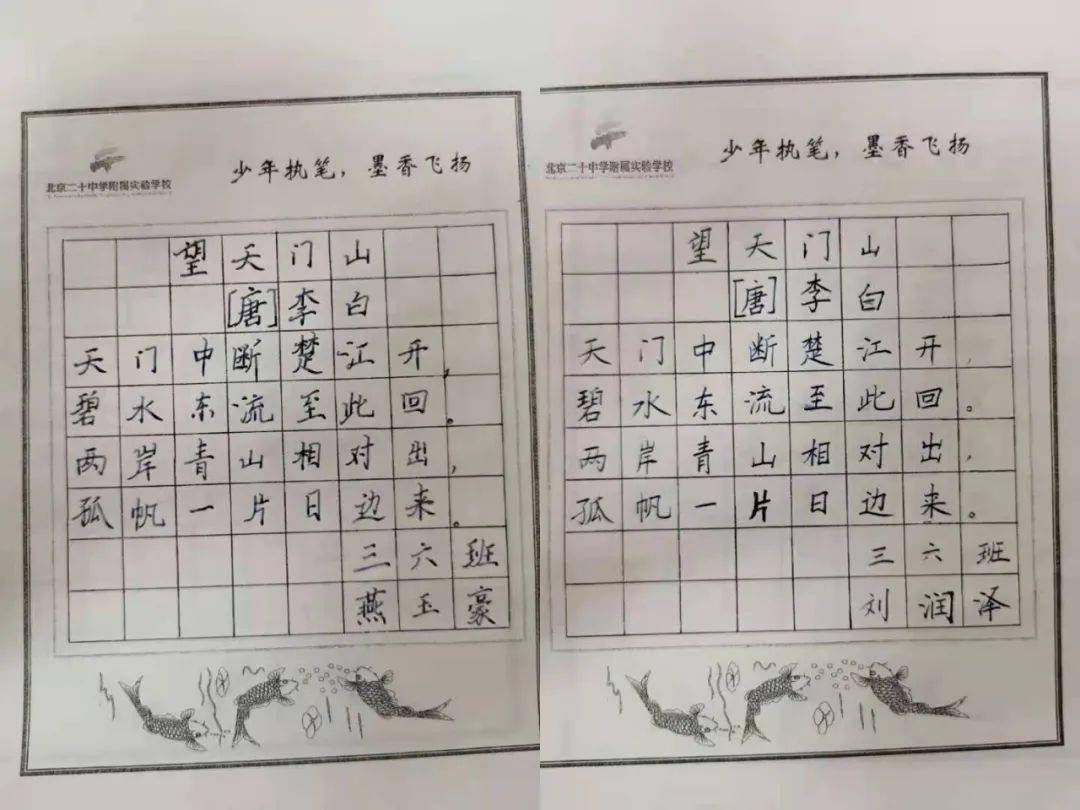 北京二十中学附属实验学校
少年执笔，墨香飞扬
望天门山
[唐]李白
天门中断楚江开，
碧水东流至此回。
两岸青山相对出，
孤帆一片日边来。
三六班
燕玉豪
北京二十中学附属实验学校
少年执笔，墨香飞扬
望天门山
[唐]李白
天门中断楚江开，
碧水东流至此回。
两岸青山相对出，
孤帆一片日边来。
三六班
刘润泽